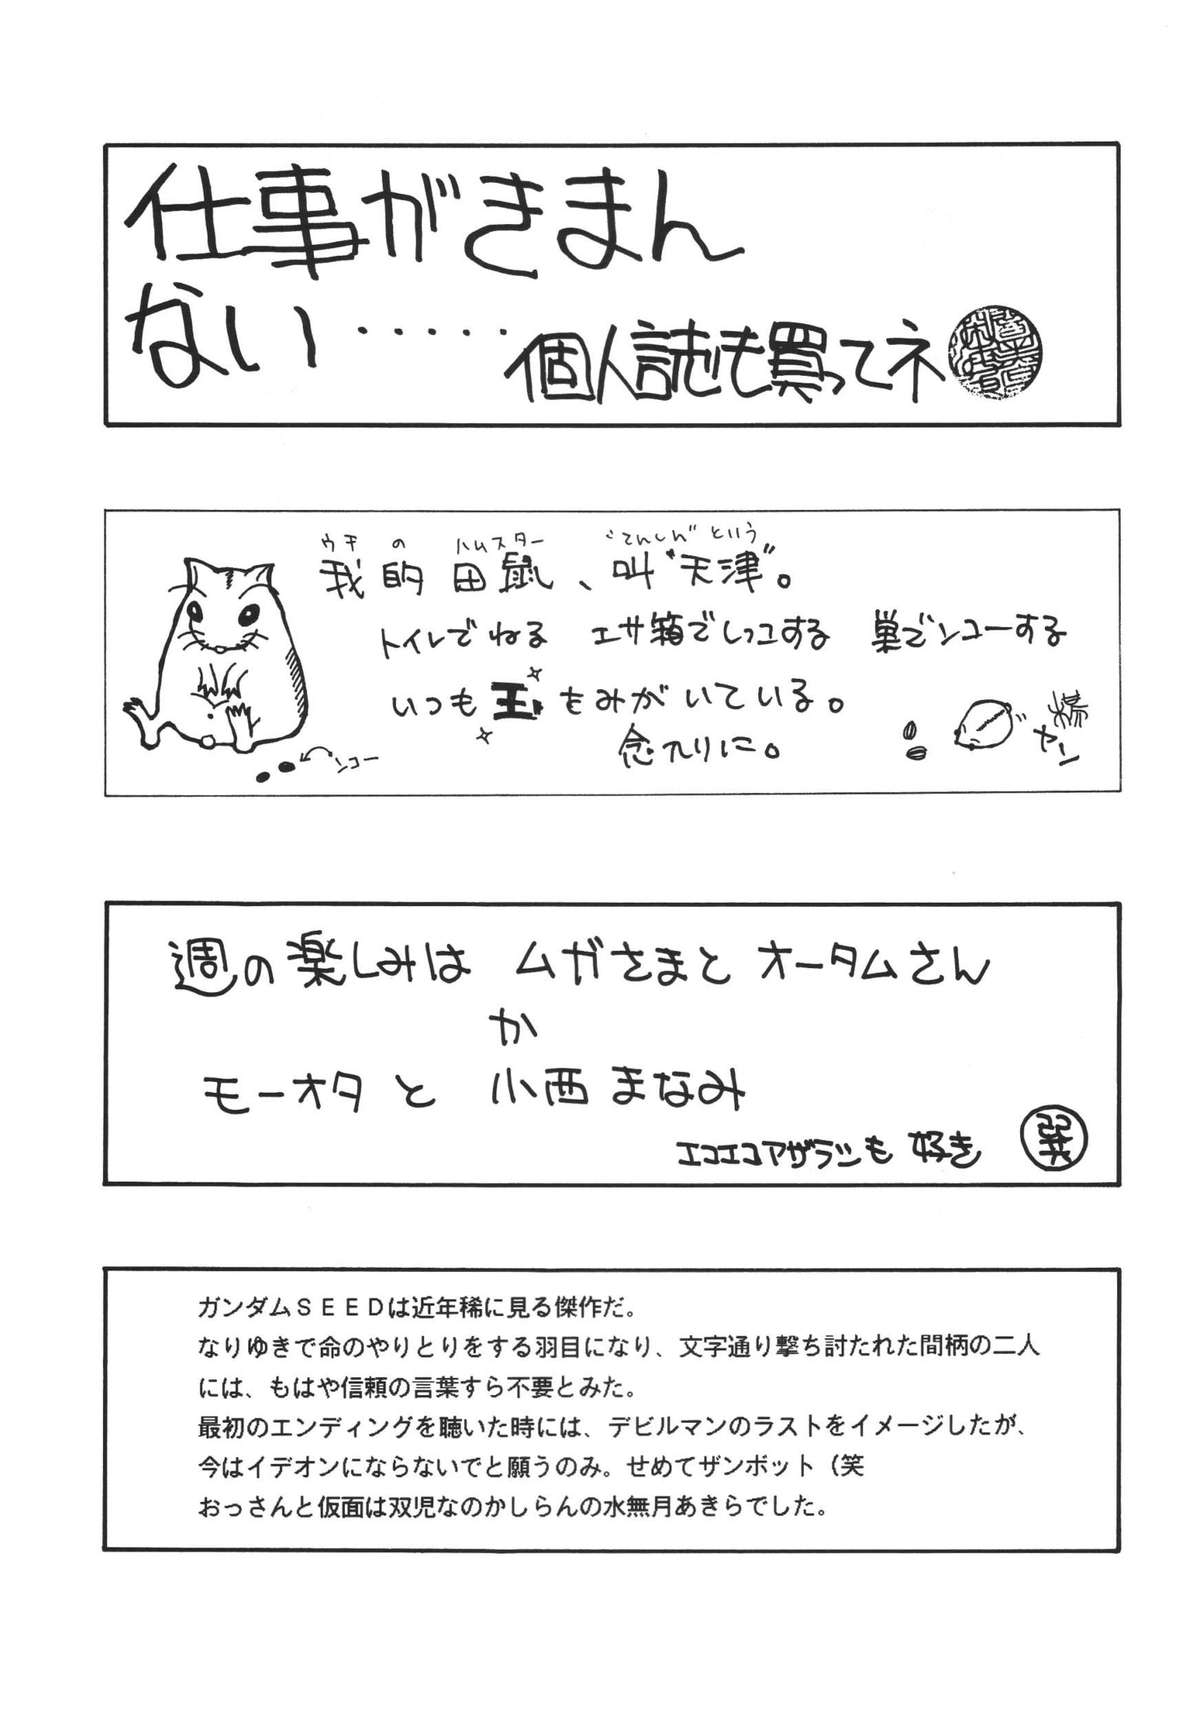 仕事がきまん
ない・・・・・
個人誌も買ってネ
ウチ の ハムスター "てんしん" という
我的田鼠、叫"天津"。
トイレでねる エサ箱でしっこする 巣でンコーする
いつも玉をみがいている。
念入りに。
ンコー
楊
ヤン
週の楽しみは ムガさまと オータムさん
か
モーオタと 小西まなみ
エコエコアザラシも 好き
巽
ガンダムＳＥＥＤは近年稀に見る傑作だ。
なりゆきで命のやりとりをする羽目になり、文字通り撃ち討たれた間柄の二人
には、もはや信頼の言葉すら不要とみた。
最初のエンディングを聴いた時には、デビルマンのラストをイメージしたが、
今はイデオンにならないでと願うのみ。せめてザンボット（笑
おっさんと仮面は双児なのかしらんの水無月あきらでした。